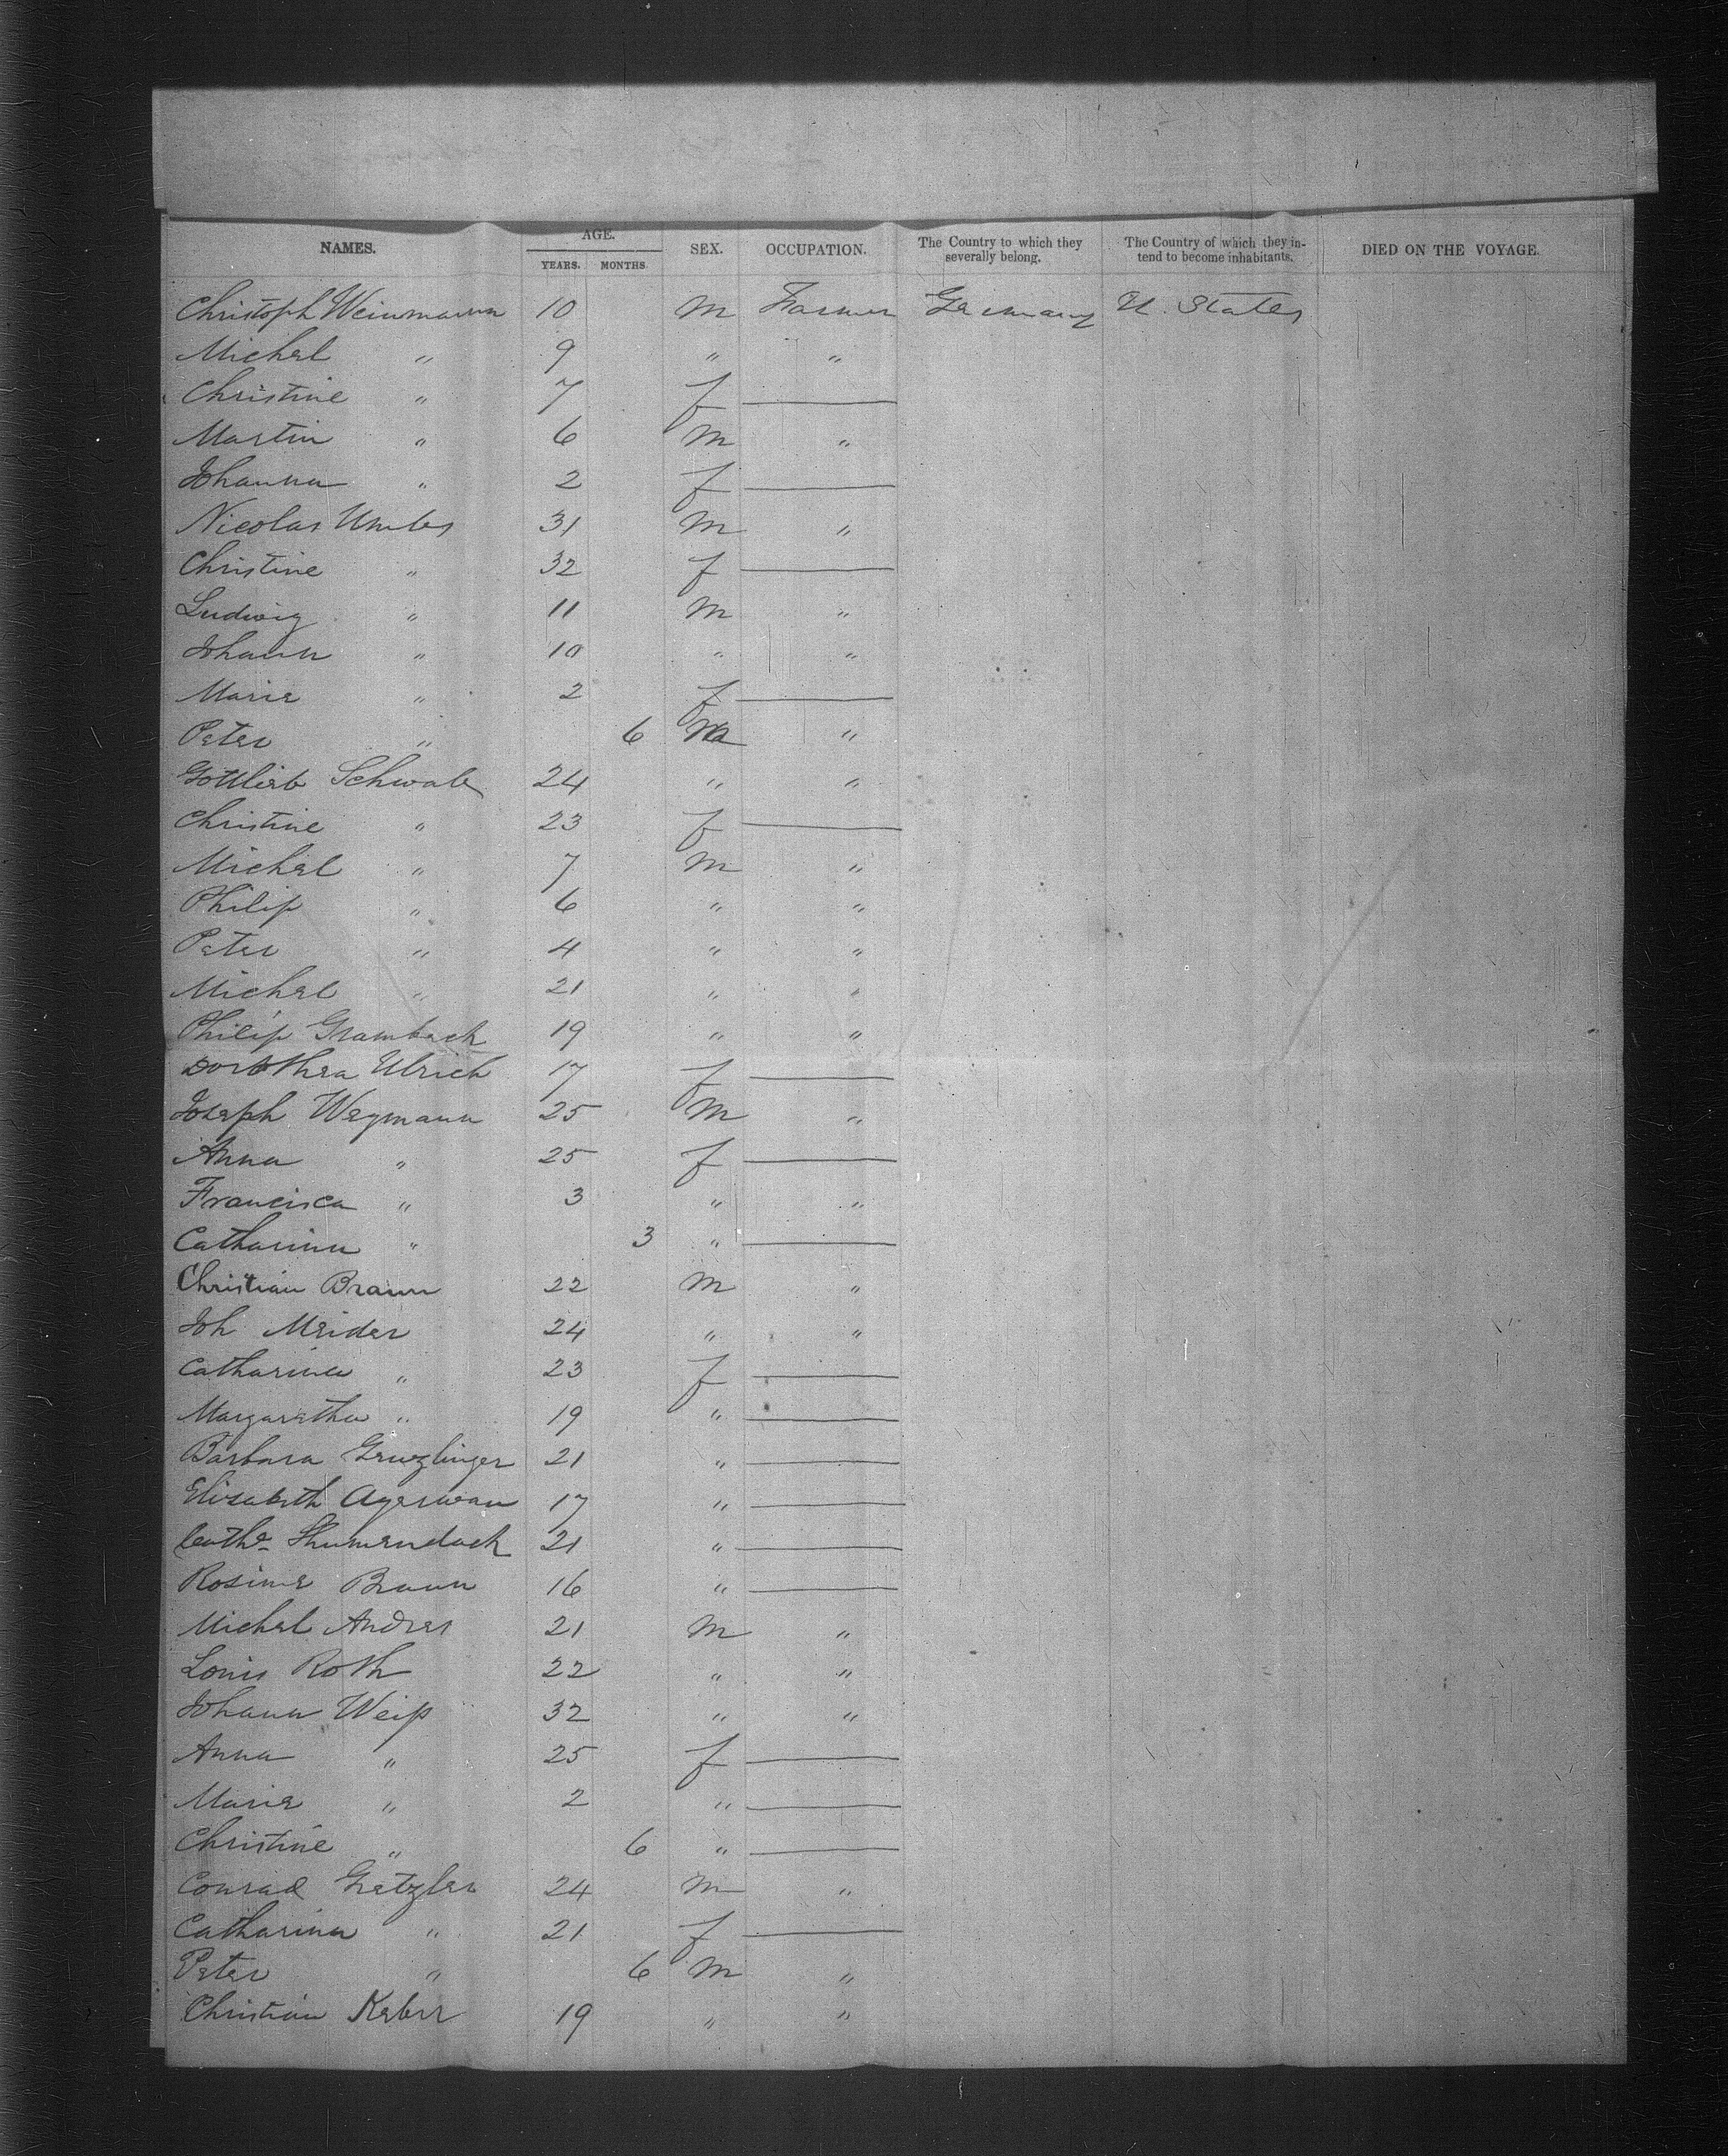 NAMES. AGE. YEARS. MONTHS. SEX. OCCUPATION. The Country to which they severally belong. The Country of which they intend to become inhabitants. DIED ON THE VOYAGE.
Christoph Weinmann 10 m Farmer Germany U. States
Michel " 9 " "
Christine " 7 f —
Martin " 6 m "
Johanna " 2 f —
Nicolas 31 m "
Christine " 32 f —
Ludwig " 11 m "
Johann " 10 " "
Marie " 2 f —
Peter " 6 m "
Gottlieb Schwab 24 " "
Christine " 23 f —
Michel " 7 m "
Philip " 6 " "
Peter " 4 " "
Michel " 21 " "
Philip Grambach 19 " "
Dorothea Ulrich 17 f —
Joseph Wegmann 25 m "
Anna " 25 f —
Francisca " 3 " "
Catharina " 3 " —
Christian Braun 22 m "
Joh Meider 24 " "
Catharina " 23 f —
Margaretha " 19 " —
Barbara 21 " —
Elisabeth 17 " —
Cath^a 21 " —
Rosine Braun 16 " —
Michel Andres 21 m "
Louis Roth 22 " "
Johann Weiß 32 " "
Anna " 25 f —
Marie " 2 " —
Christine " 6 " —
Conrad 24 m "
Catharina " 21 f —
Peter " 6 m "
Christian 19 " "